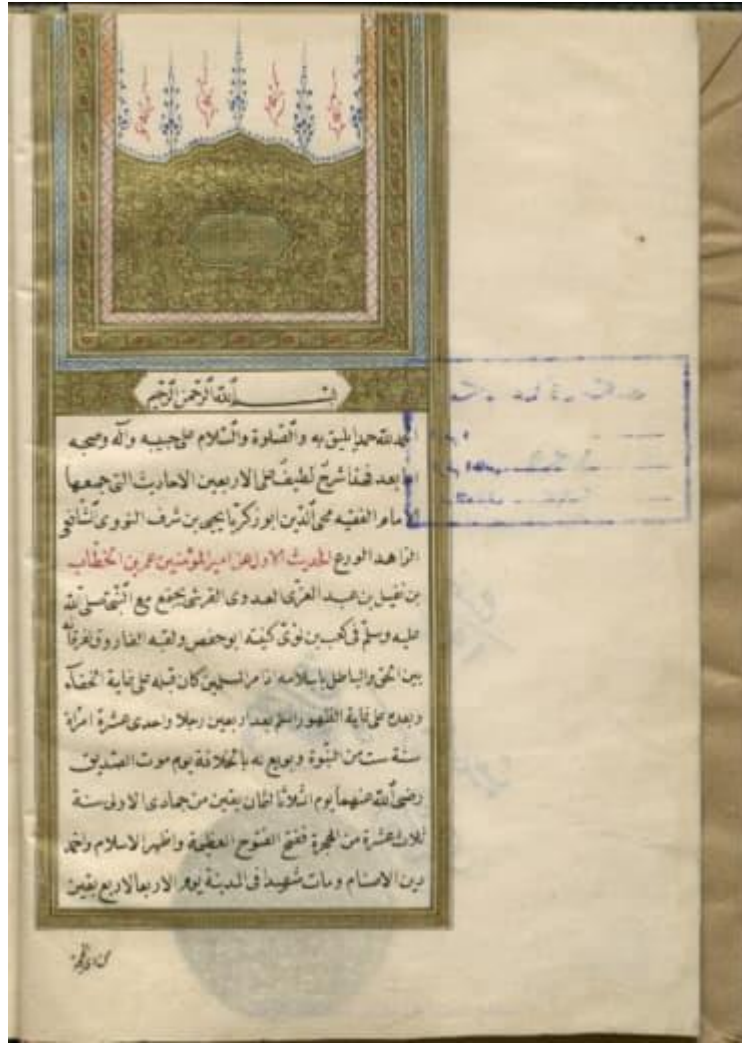 بسم الله الرحمن الرحيم
الحمد لله حمدا يليق به والصلوة والسلام على حبيبه وآله وصحبه
اما بعد فهذا شرح لطيف على الاربعين الاحاديث التى جمعها
الامام الفقيه محى الدين ابو زكريا يحيى بن شرف النووى الشافعى
الزاهد الورع الحديث الاول عن امير المؤمنين عمر بن الخطاب
بن نفيل بن عبد العزى العدوى القرشى يجتمع مع النبى صلى الله
عليه وسلم فى كعب بن لؤى كنيته ابو حفص ولقبه الفاروق لفرقانه
بين الحق والباطل باسلامه اذ امر المسلمين كان قبله على غاية الخفاء
وبعده على غاية الظهور اسلم بعد اربعين رجلا واحدى عشرة امراة
سنة ست من النبوة وبويع له بالخلافة يوم موت الصديق
رضى الله عنهما يوم الثلاثا لثمان بقين من جمادى الاولى سنة
ثلاث عشرة من الهجرة ففتح الفتوح العظيمة واظهر الاسلام واخمد
دين الاصنام ومات شهيدا فى المدينة يوم الاربعا لاربع بقين
من ذى الحجة